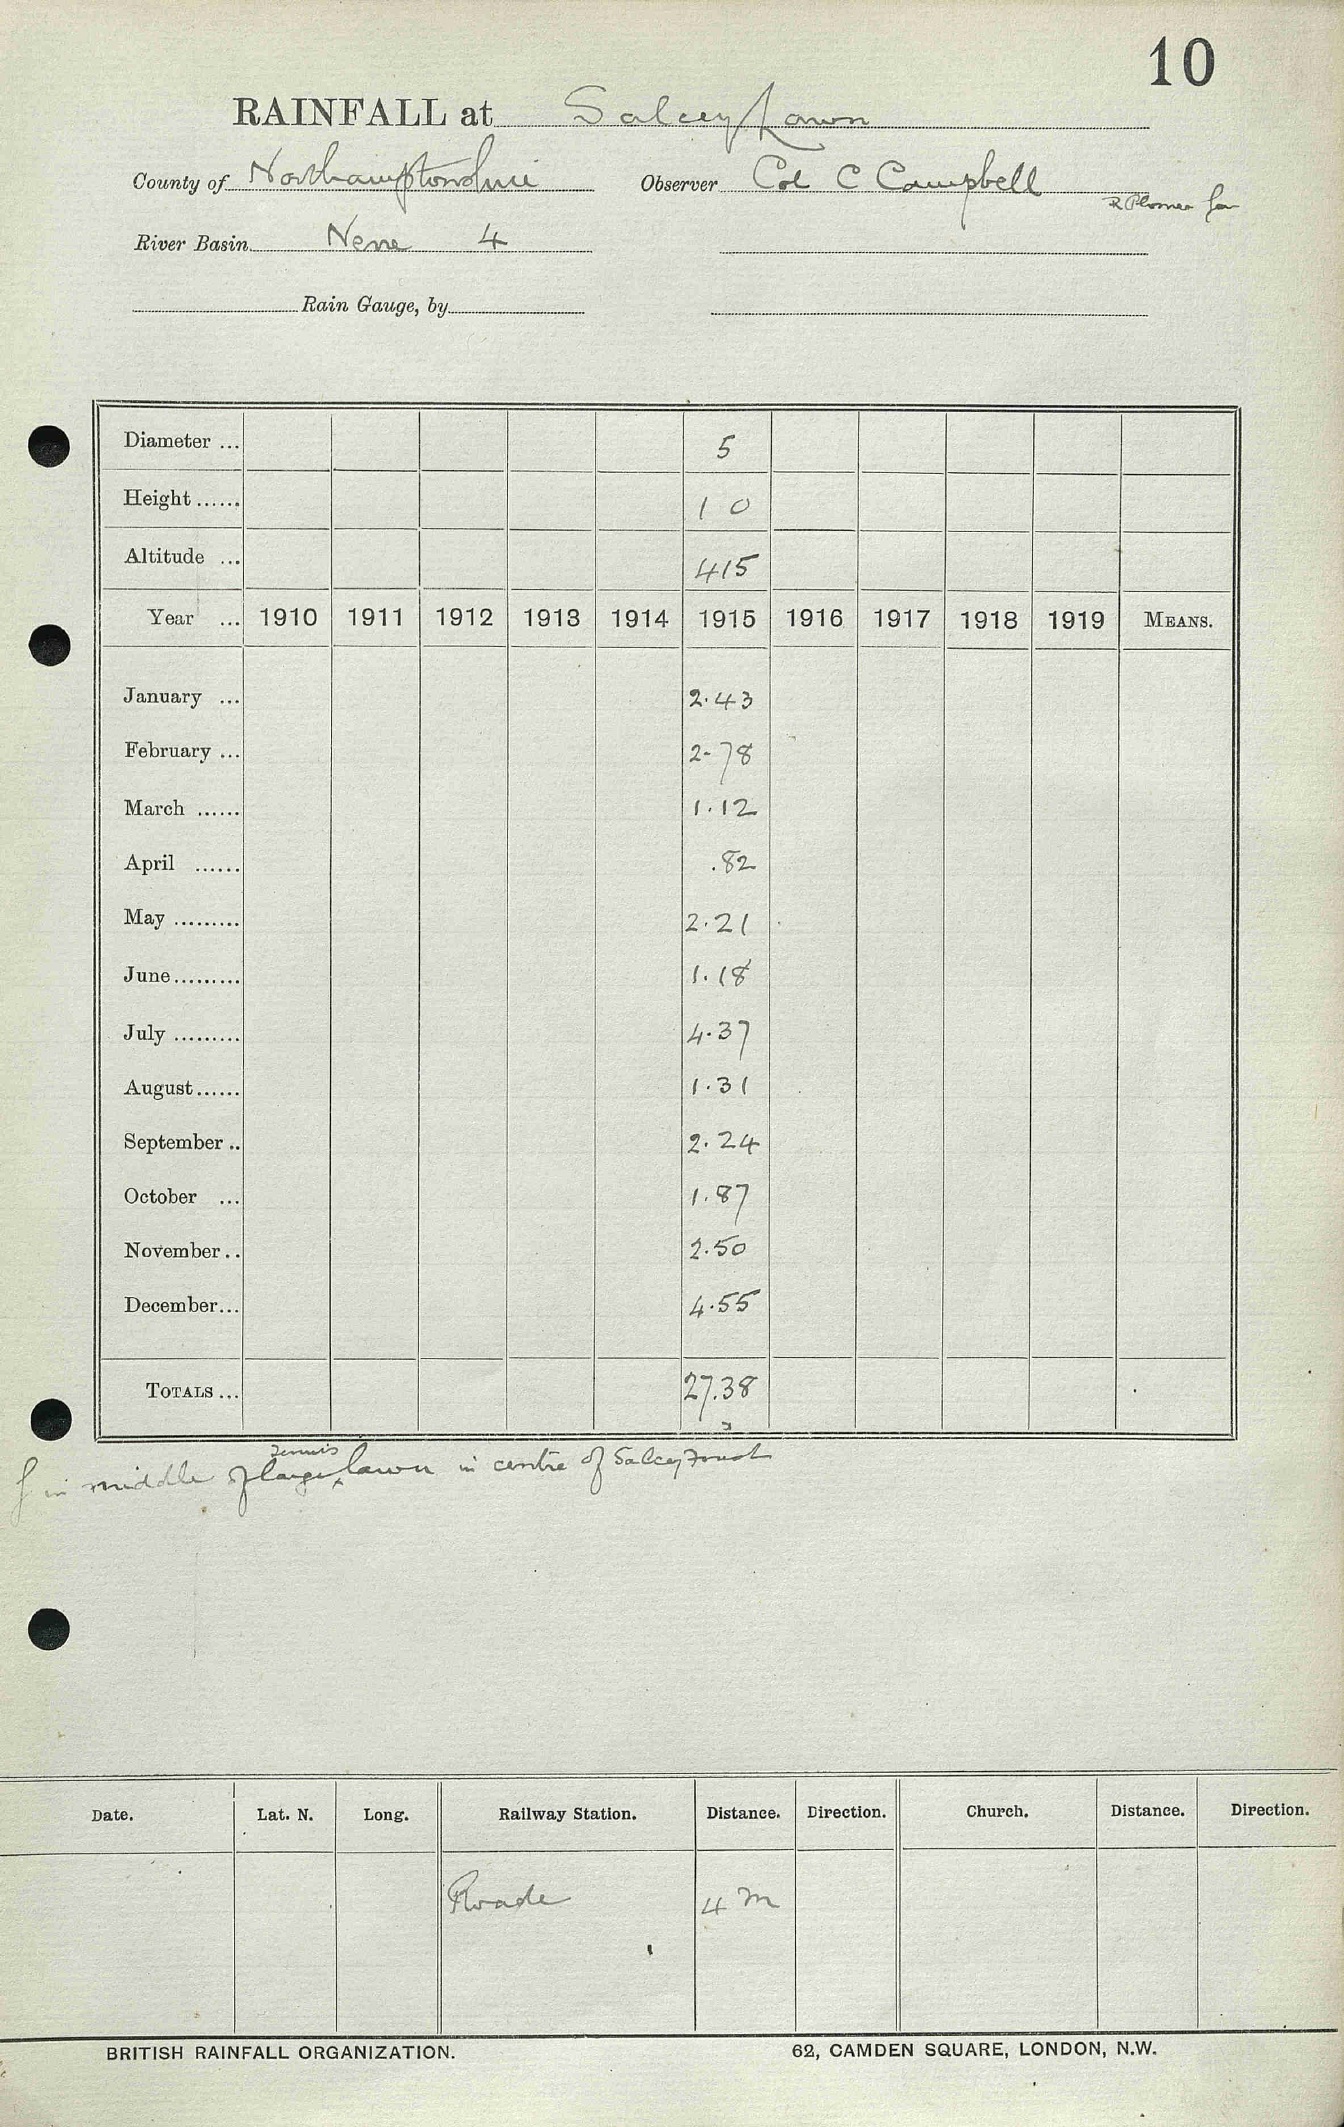 10
RAINFALL at Salcey Lawn
County of Northamptonshire Observer Col C Campbell
R Plomer
River Basin Nene 4
Rain Gauge, by
Diameter ... 5
Height ...... 1 0
Altitude ... 415
Year ... 1910 1911 1912 1913 1914 1915 1916 1917 1918 1919 MEANS.
January ... 2.43
February ... 2.78
March ...... 1.12
April ...... .82
May ......... 2.21
June ......... 1.18
July ......... 4.37
August ...... 1.31
September .. 2.24
October ... 1.87
November .. 2.50
December ... 4.55
TOTALS ... 27.38
tennis
in middle of large lawn in centre of Salcey Forest
Date. Lat. N. Long. Railway Station. Distance. Direction. Church. Distance. Direction.
Roade 4 m
BRITISH RAINFALL ORGANIZATION. 62, CAMDEN SQUARE, LONDON, N.W.